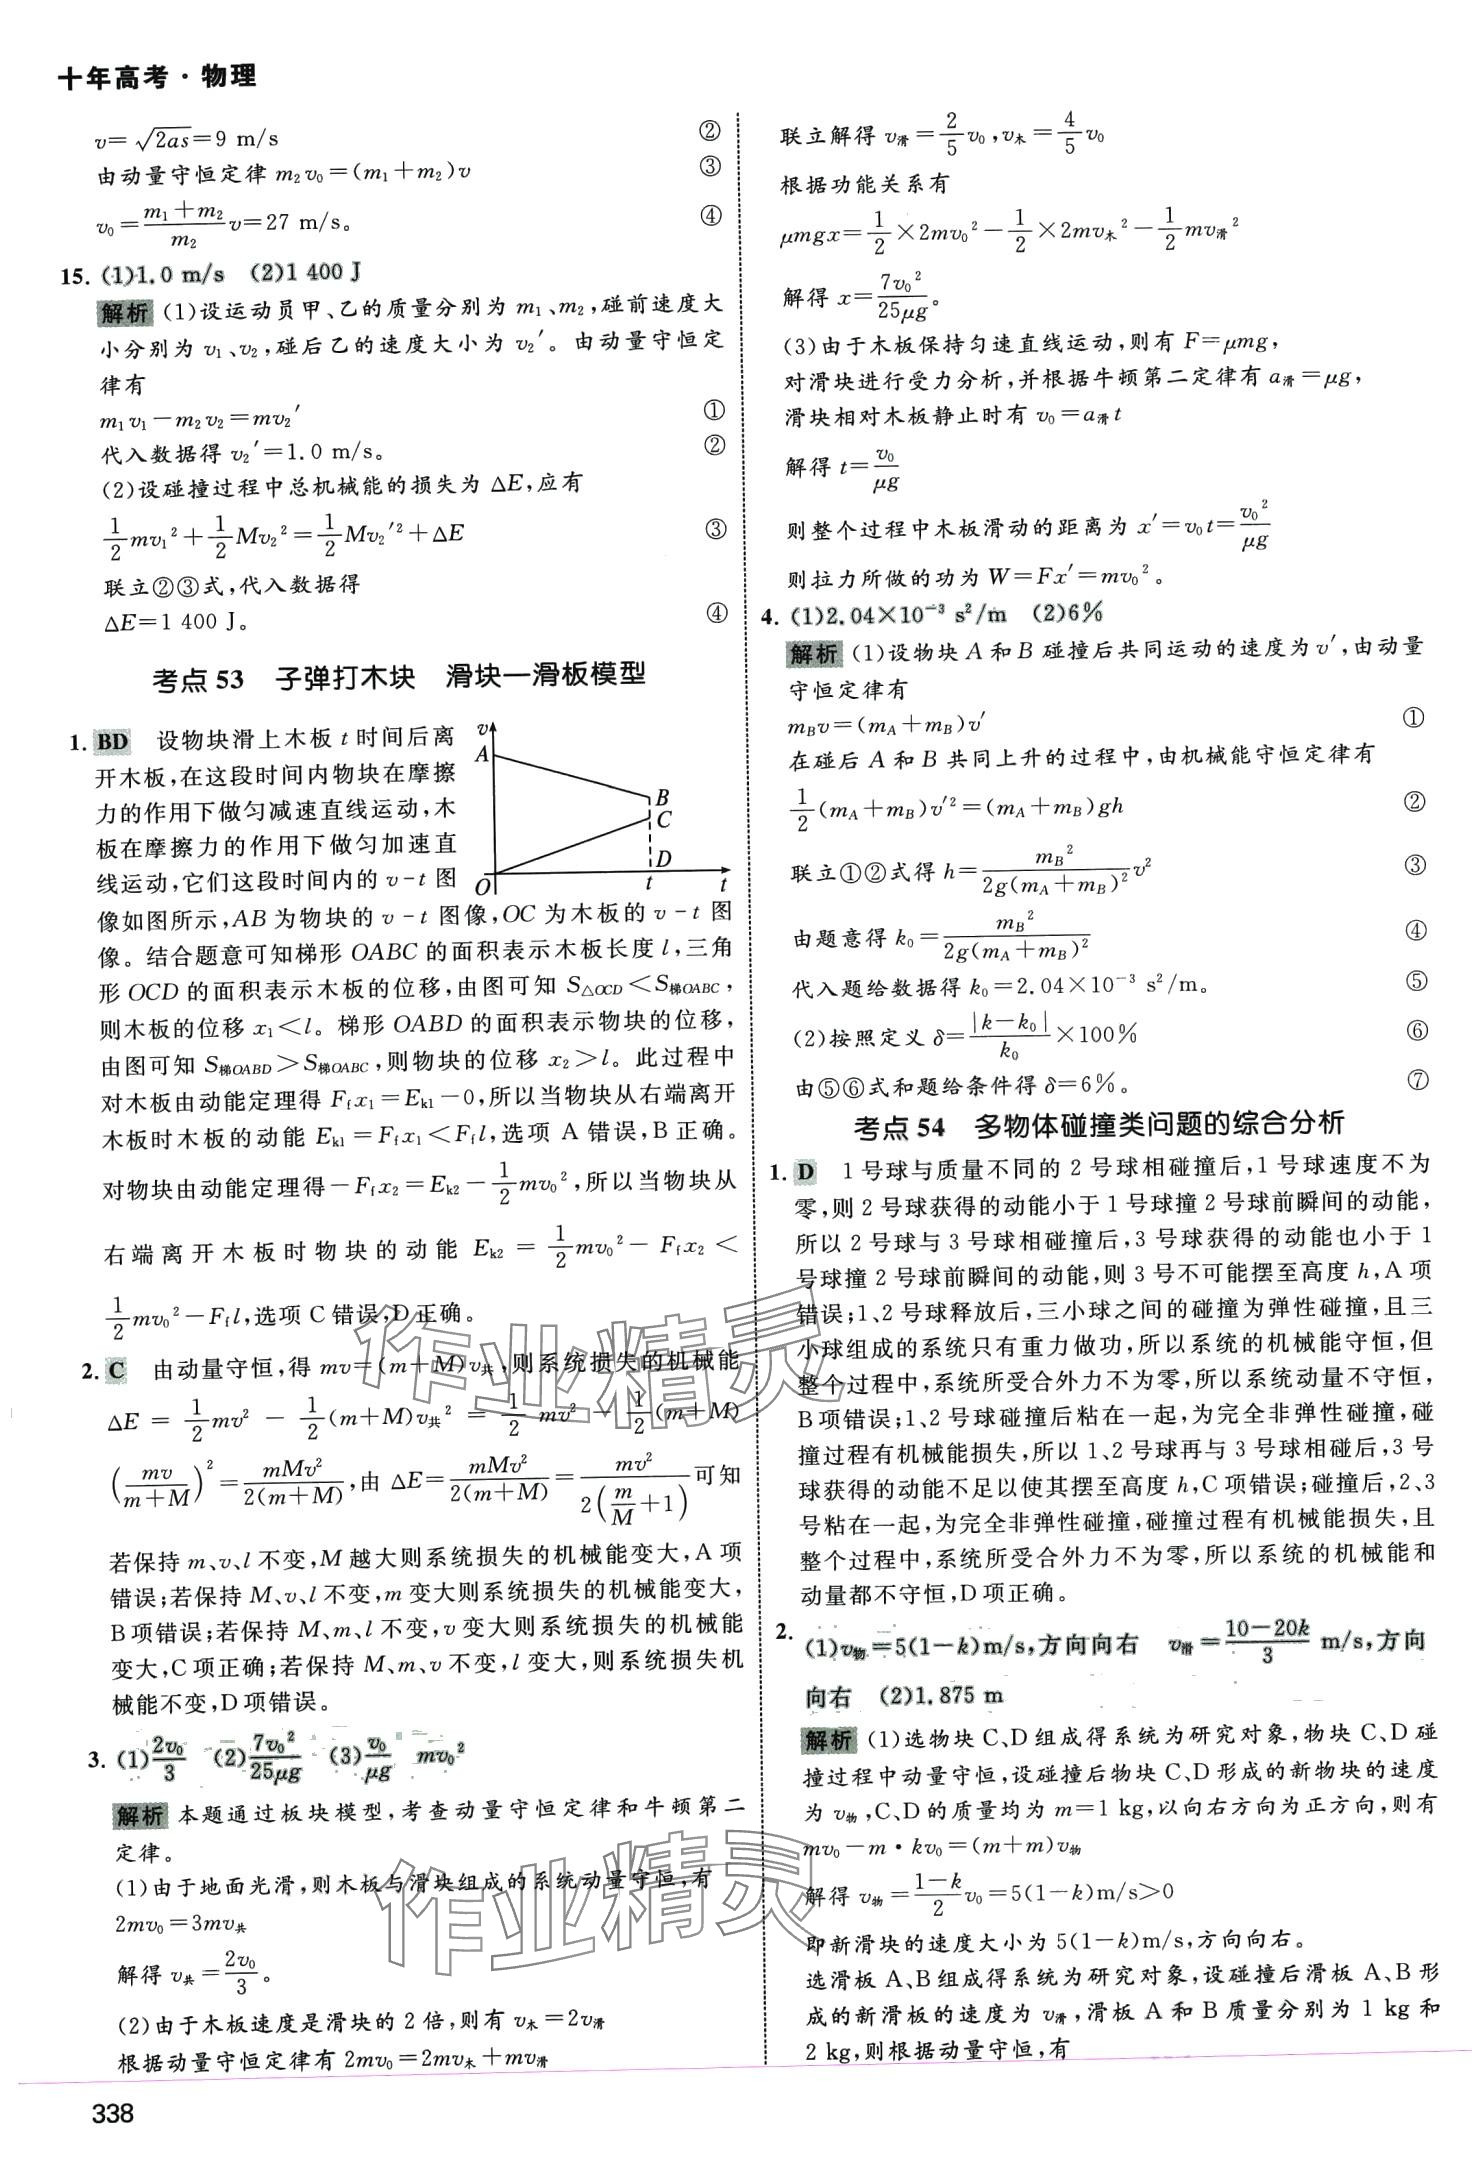 十年高考·物理
v=√2as=9 m/s ②
由动量守恒定律 m₂v₀=(m₁+m₂)v ③
v₀=(m₁+m₂)/m₂ v=27 m/s。 ④
15. (1)1.0 m/s (2)1 400 J
解析 (1)设运动员甲、乙的质量分别为 m₁、m₂,碰前速度大
小分别为 v₁、v₂,碰后乙的速度大小为 v₂′。由动量守恒定
律有
m₁v₁-m₂v₂=mv₂′ ①
代入数据得 v₂′=1.0 m/s。 ②
(2)设碰撞过程中总机械能的损失为 ΔE,应有
1/2 mv₁²+1/2 Mv₂²=1/2 Mv₂′²+ΔE ③
联立②③式,代入数据得
ΔE=1 400 J。 ④
考点 53 子弹打木块 滑块—滑板模型
1. BD 设物块滑上木板 t 时间后离
开木板,在这段时间内物块在摩擦
力的作用下做匀减速直线运动,木
板在摩擦力的作用下做匀加速直
线运动,它们这段时间内的 v-t 图
v
A
B
C
D
O t t
像如图所示,AB 为物块的 v-t 图像,OC 为木板的 v-t 图
像。结合题意可知梯形 OABC 的面积表示木板长度 l,三角
形 OCD 的面积表示木板的位移,由图可知 S△OCD<S梯OABC,
则木板的位移 x₁<l。梯形 OABD 的面积表示物块的位移,
由图可知 S梯OABD>S梯OABC,则物块的位移 x₂>l。此过程中
对木板由动能定理得 Ffx₁=Ek1-0,所以当物块从右端离开
木板时木板的动能 Ek1=Ffx₁<Ffl,选项 A 错误,B 正确。
对物块由动能定理得-Ffx₂=Ek2-1/2 mv₀²,所以当物块从
右端离开木板时物块的动能 Ek2=1/2 mv₀²-Ffx₂<
1/2 mv₀²-Ffl,选项 C 错误,D 正确。
2. C 由动量守恒,得 mv=(m+M)v共,则系统损失的机械能
ΔE=1/2 mv²-1/2(m+M)v共²=1/2 mv²-1/2(m+M)
(mv/(m+M))²=mMv²/2(m+M),由 ΔE=mMv²/2(m+M)=mv²/2(m/M+1)可知
若保持 m、v、l 不变,M 越大则系统损失的机械能变大,A 项
错误;若保持 M、v、l 不变,m 变大则系统损失的机械能变大,
B 项错误;若保持 M、m、l 不变,v 变大则系统损失的机械能
变大,C 项正确;若保持 M、m、v 不变,l 变大,则系统损失机
械能不变,D 项错误。
3. (1)2v₀/3 (2)7v₀²/25μg (3)v₀/μg mv₀²
解析 本题通过板块模型,考查动量守恒定律和牛顿第二
定律。
(1)由于地面光滑,则木板与滑块组成的系统动量守恒,有
2mv₀=3mv共
解得 v共=2v₀/3。
(2)由于木板速度是滑块的 2 倍,则有 v木=2v滑
根据动量守恒定律有 2mv₀=2mv木+mv滑
联立解得 v滑=2/5 v₀,v木=4/5 v₀
根据功能关系有
μmgx=1/2×2mv₀²-1/2×2mv木²-1/2 mv滑²
解得 x=7v₀²/25μg。
(3)由于木板保持匀速直线运动,则有 F=μmg,
对滑块进行受力分析,并根据牛顿第二定律有 a滑=μg,
滑块相对木板静止时有 v₀=a滑t
解得 t=v₀/μg
则整个过程中木板滑动的距离为 x′=v₀t=v₀²/μg
则拉力所做的功为 W=Fx′=mv₀²。
4. (1)2.04×10⁻³ s²/m (2)6%
解析 (1)设物块 A 和 B 碰撞后共同运动的速度为 v′,由动量
守恒定律有
mBv=(mA+mB)v′ ①
在碰后 A 和 B 共同上升的过程中,由机械能守恒定律有
1/2(mA+mB)v′²=(mA+mB)gh ②
联立①②式得 h=mB²/2g(mA+mB)² v² ③
由题意得 k₀=mB²/2g(mA+mB)² ④
代入题给数据得 k₀=2.04×10⁻³ s²/m。 ⑤
(2)按照定义 δ=|k-k₀|/k₀×100% ⑥
由⑤⑥式和题给条件得 δ=6%。 ⑦
考点 54 多物体碰撞类问题的综合分析
1. D 1 号球与质量不同的 2 号球相碰撞后,1 号球速度不为
零,则 2 号球获得的动能小于 1 号球撞 2 号球前瞬间的动能,
所以 2 号球与 3 号球相碰撞后,3 号球获得的动能也小于 1
号球撞 2 号球前瞬间的动能,则 3 号不可能摆至高度 h,A 项
错误;1、2 号球释放后,三小球之间的碰撞为弹性碰撞,且三
小球组成的系统只有重力做功,所以系统的机械能守恒,但
整个过程中,系统所受合外力不为零,所以系统动量不守恒,
B 项错误;1、2 号球碰撞后粘在一起,为完全非弹性碰撞,碰
撞过程有机械能损失,所以 1、2 号球再与 3 号球相碰后,3 号
球获得的动能不足以使其摆至高度 h,C 项错误;碰撞后,2、3
号粘在一起,为完全非弹性碰撞,碰撞过程有机械能损失,且
整个过程中,系统所受合外力不为零,所以系统的机械能和
动量都不守恒,D 项正确。
2. (1)v物=5(1-k)m/s,方向向右 v滑=(10-20k)/3 m/s,方向
向右 (2)1.875 m
解析 (1)选物块 C、D 组成得系统为研究对象,物块 C、D 碰
撞过程中动量守恒,设碰撞后物块 C、D 形成的新物块的速度
为 v物,C、D 的质量均为 m=1 kg,以向右方向为正方向,则有
mv₀-m·kv₀=(m+m)v物
解得 v物=(1-k)/2 v₀=5(1-k)m/s>0
即新滑块的速度大小为 5(1-k)m/s,方向向右。
选滑板 A、B 组成得系统为研究对象,设碰撞后滑板 A、B 形
成的新滑板的速度为 v滑,滑板 A 和 B 质量分别为 1 kg 和
2 kg,则根据动量守恒,有
338
作业精灵
作业精灵